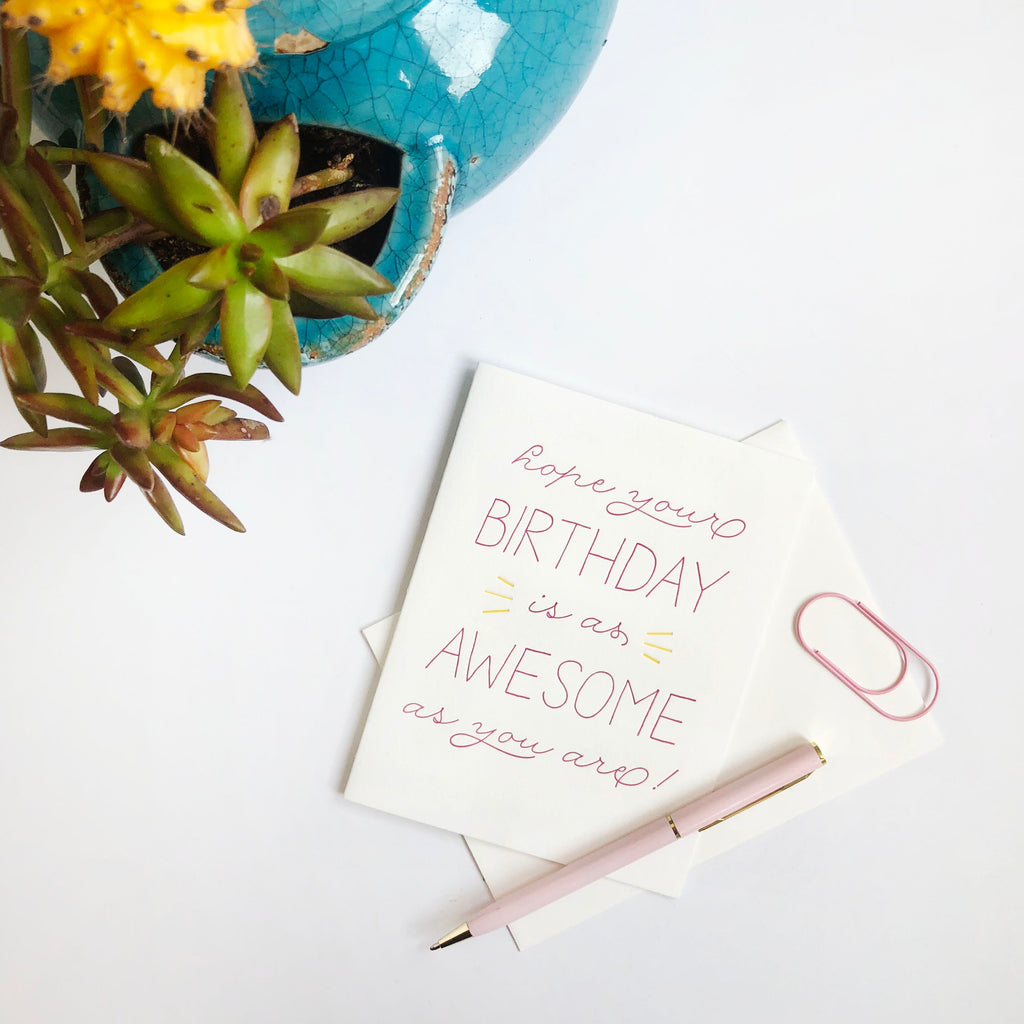 hope your
BIRTHDAY
is as
AWESOME
as you are!